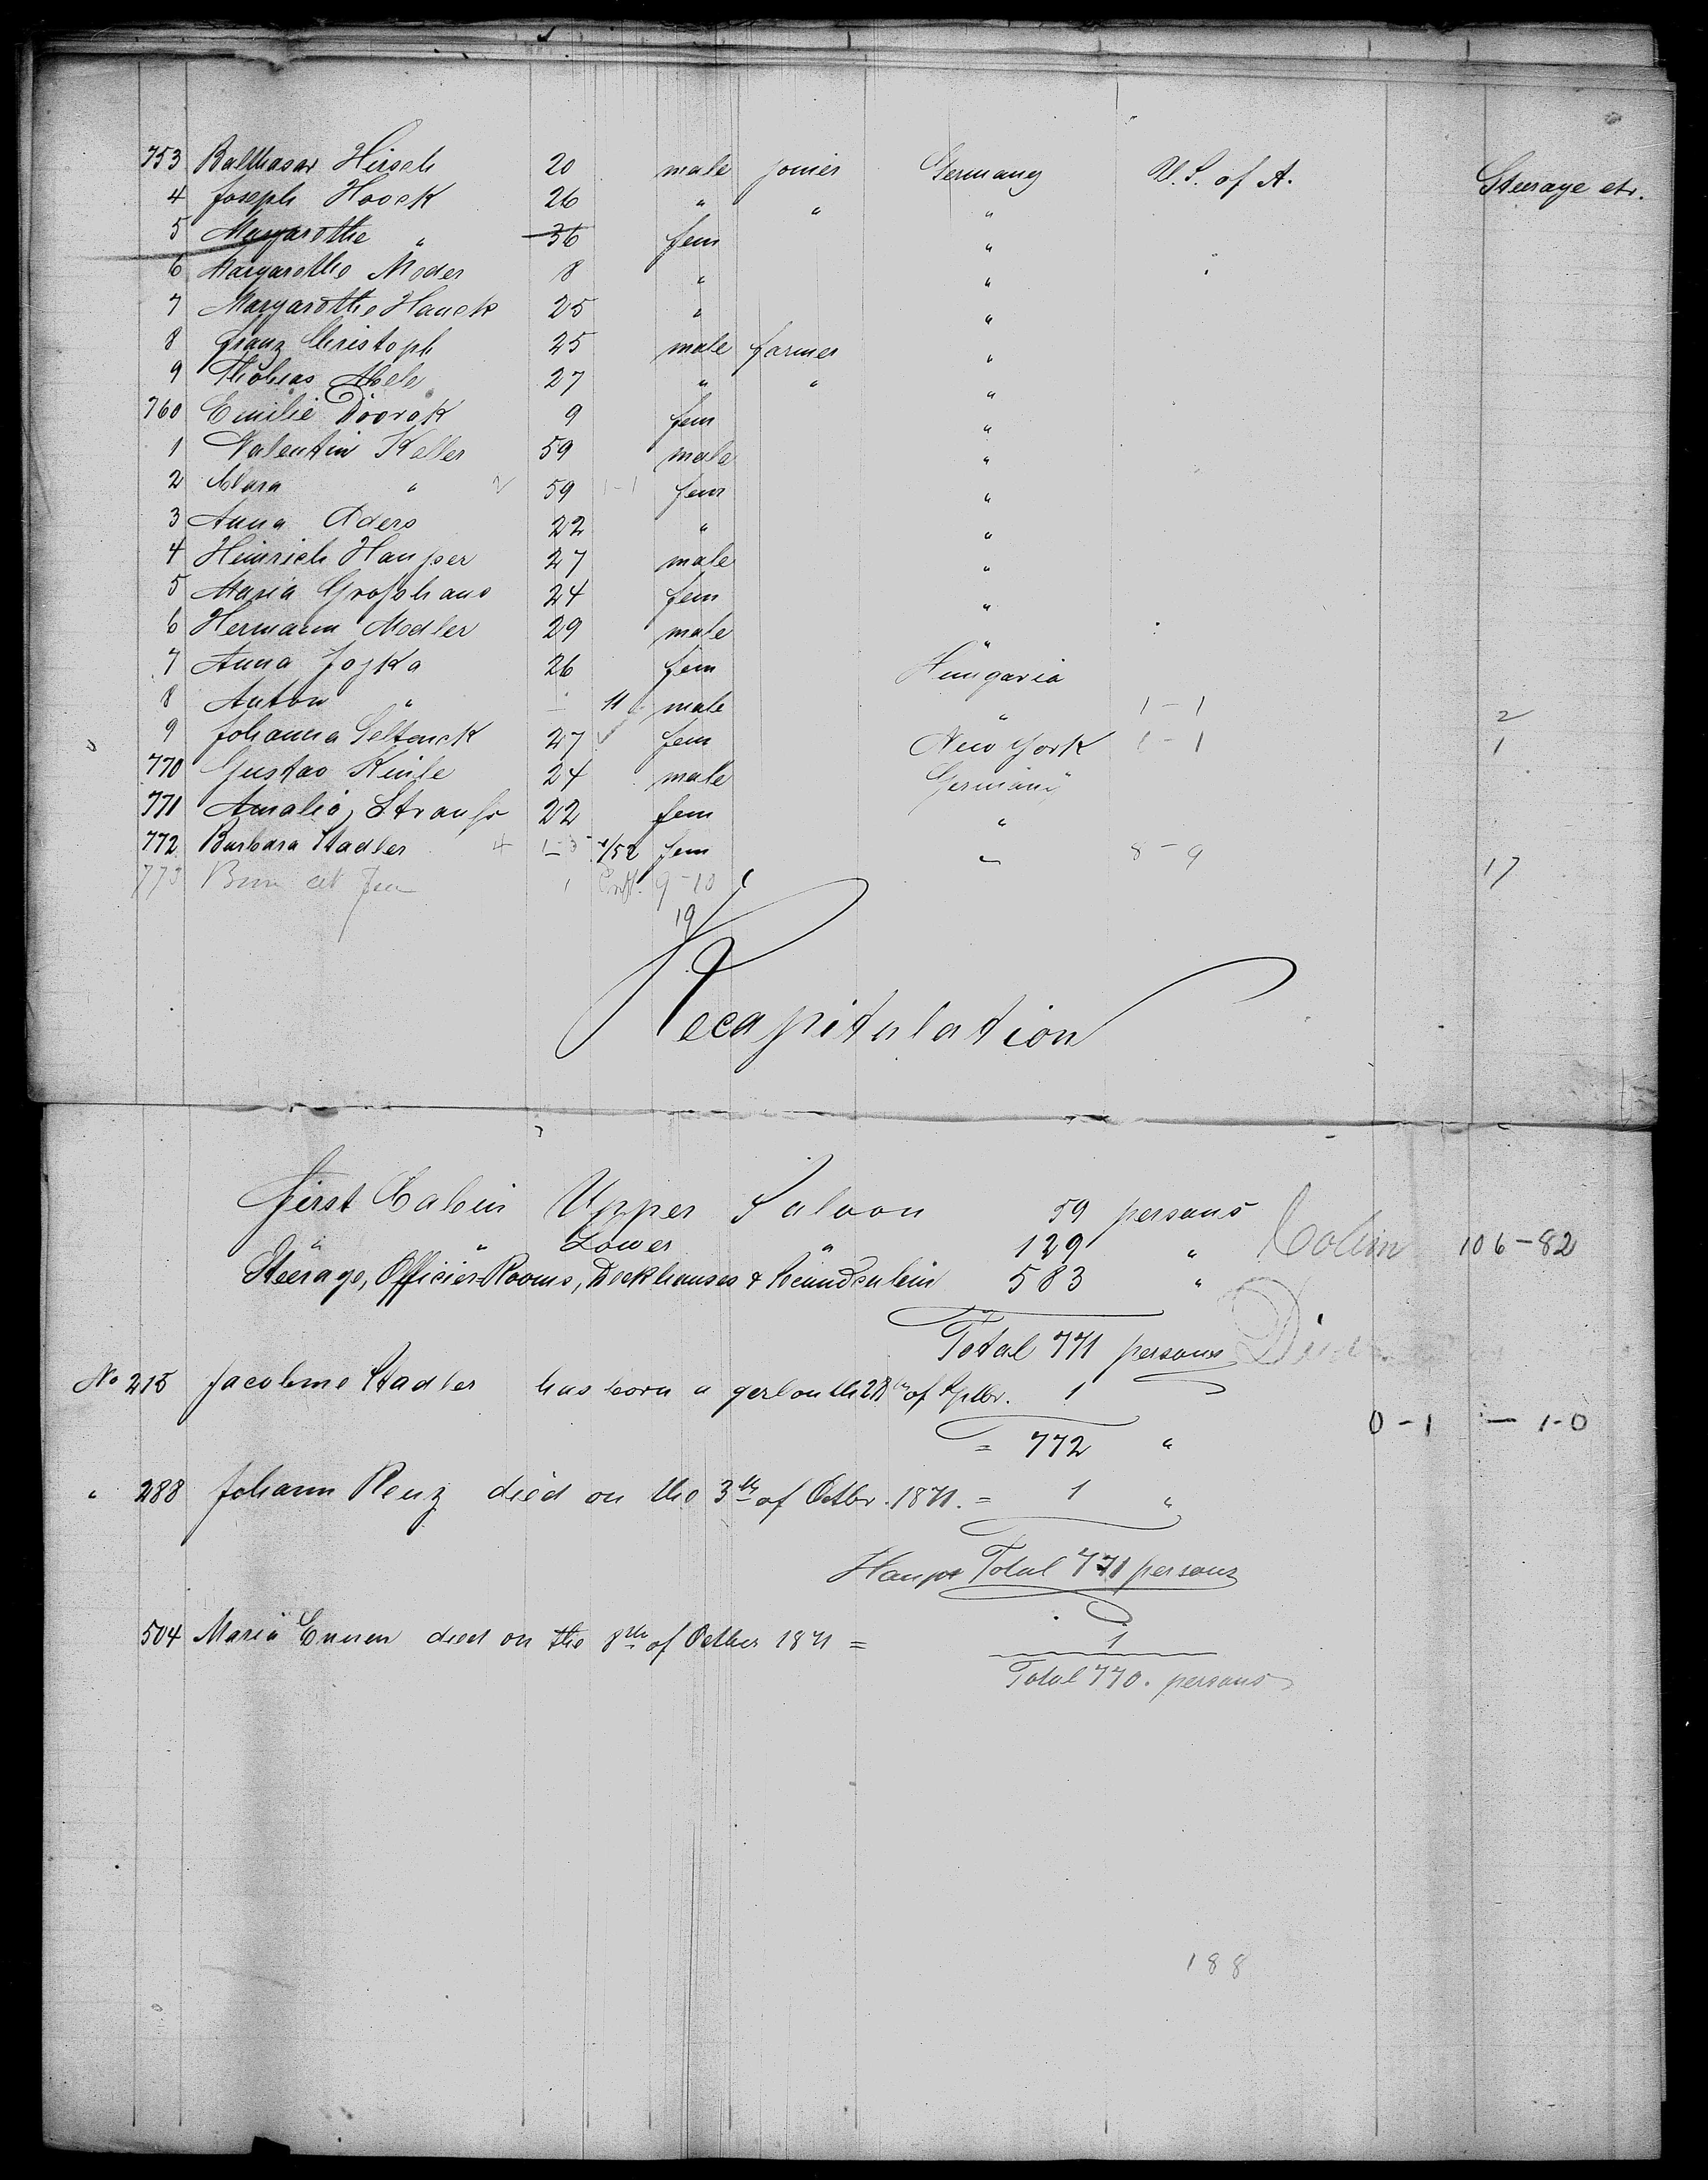 753 Balthasar Hirsch 20 male joiner Germany U.S. of A. Steerage etr.
4 Joseph Hoock 26 " " "
5 Margarethe " 36 fem "
6 Margarethe Moder 8 " "
7 Margarethe Hauck 25 " "
8 Franz Christoph 25 male farmer "
9 Thobias Abele 27 " " "
760 Emilie Dvorak 9 fem "
1 Valentin Keller 59 male "
2 Clara " 59 1-1 fem "
3 Anna Aders 22 " "
4 Heinrich Hauser 27 male "
5 Maria Großhans 24 fem "
6 Hermann Modler 29 male "
7 Anna Joska 26 fem Hungaria
8 Anton " - 11 male " 1-1 2
9 Johanna 27 fem New York 1-1 1
770 Gustav 24 male Germany
771 Amalia Strauß 22 fem "
772 Barbara Stadler 1/52 fem " 8-9 17
773 9-10
19
Recapitulation
First Cabin Upper Saloon 59 persons
" " Lower " 129 " 106-82
Steerage, Officier-Rooms, Deckhouses & 583 "
Total 771 persons
No 215 Jacobine Stadler has born a gerl on th 28th of Sptbr. 1
0-1 - 1-0
= 772 "
" 288 Johann Renz died on the 3th of Octbr. 1871. = 1 "
Haupt Total 771 persons
504 Maria died on the 8th of October 1871 = 1
Total 770. persons
188